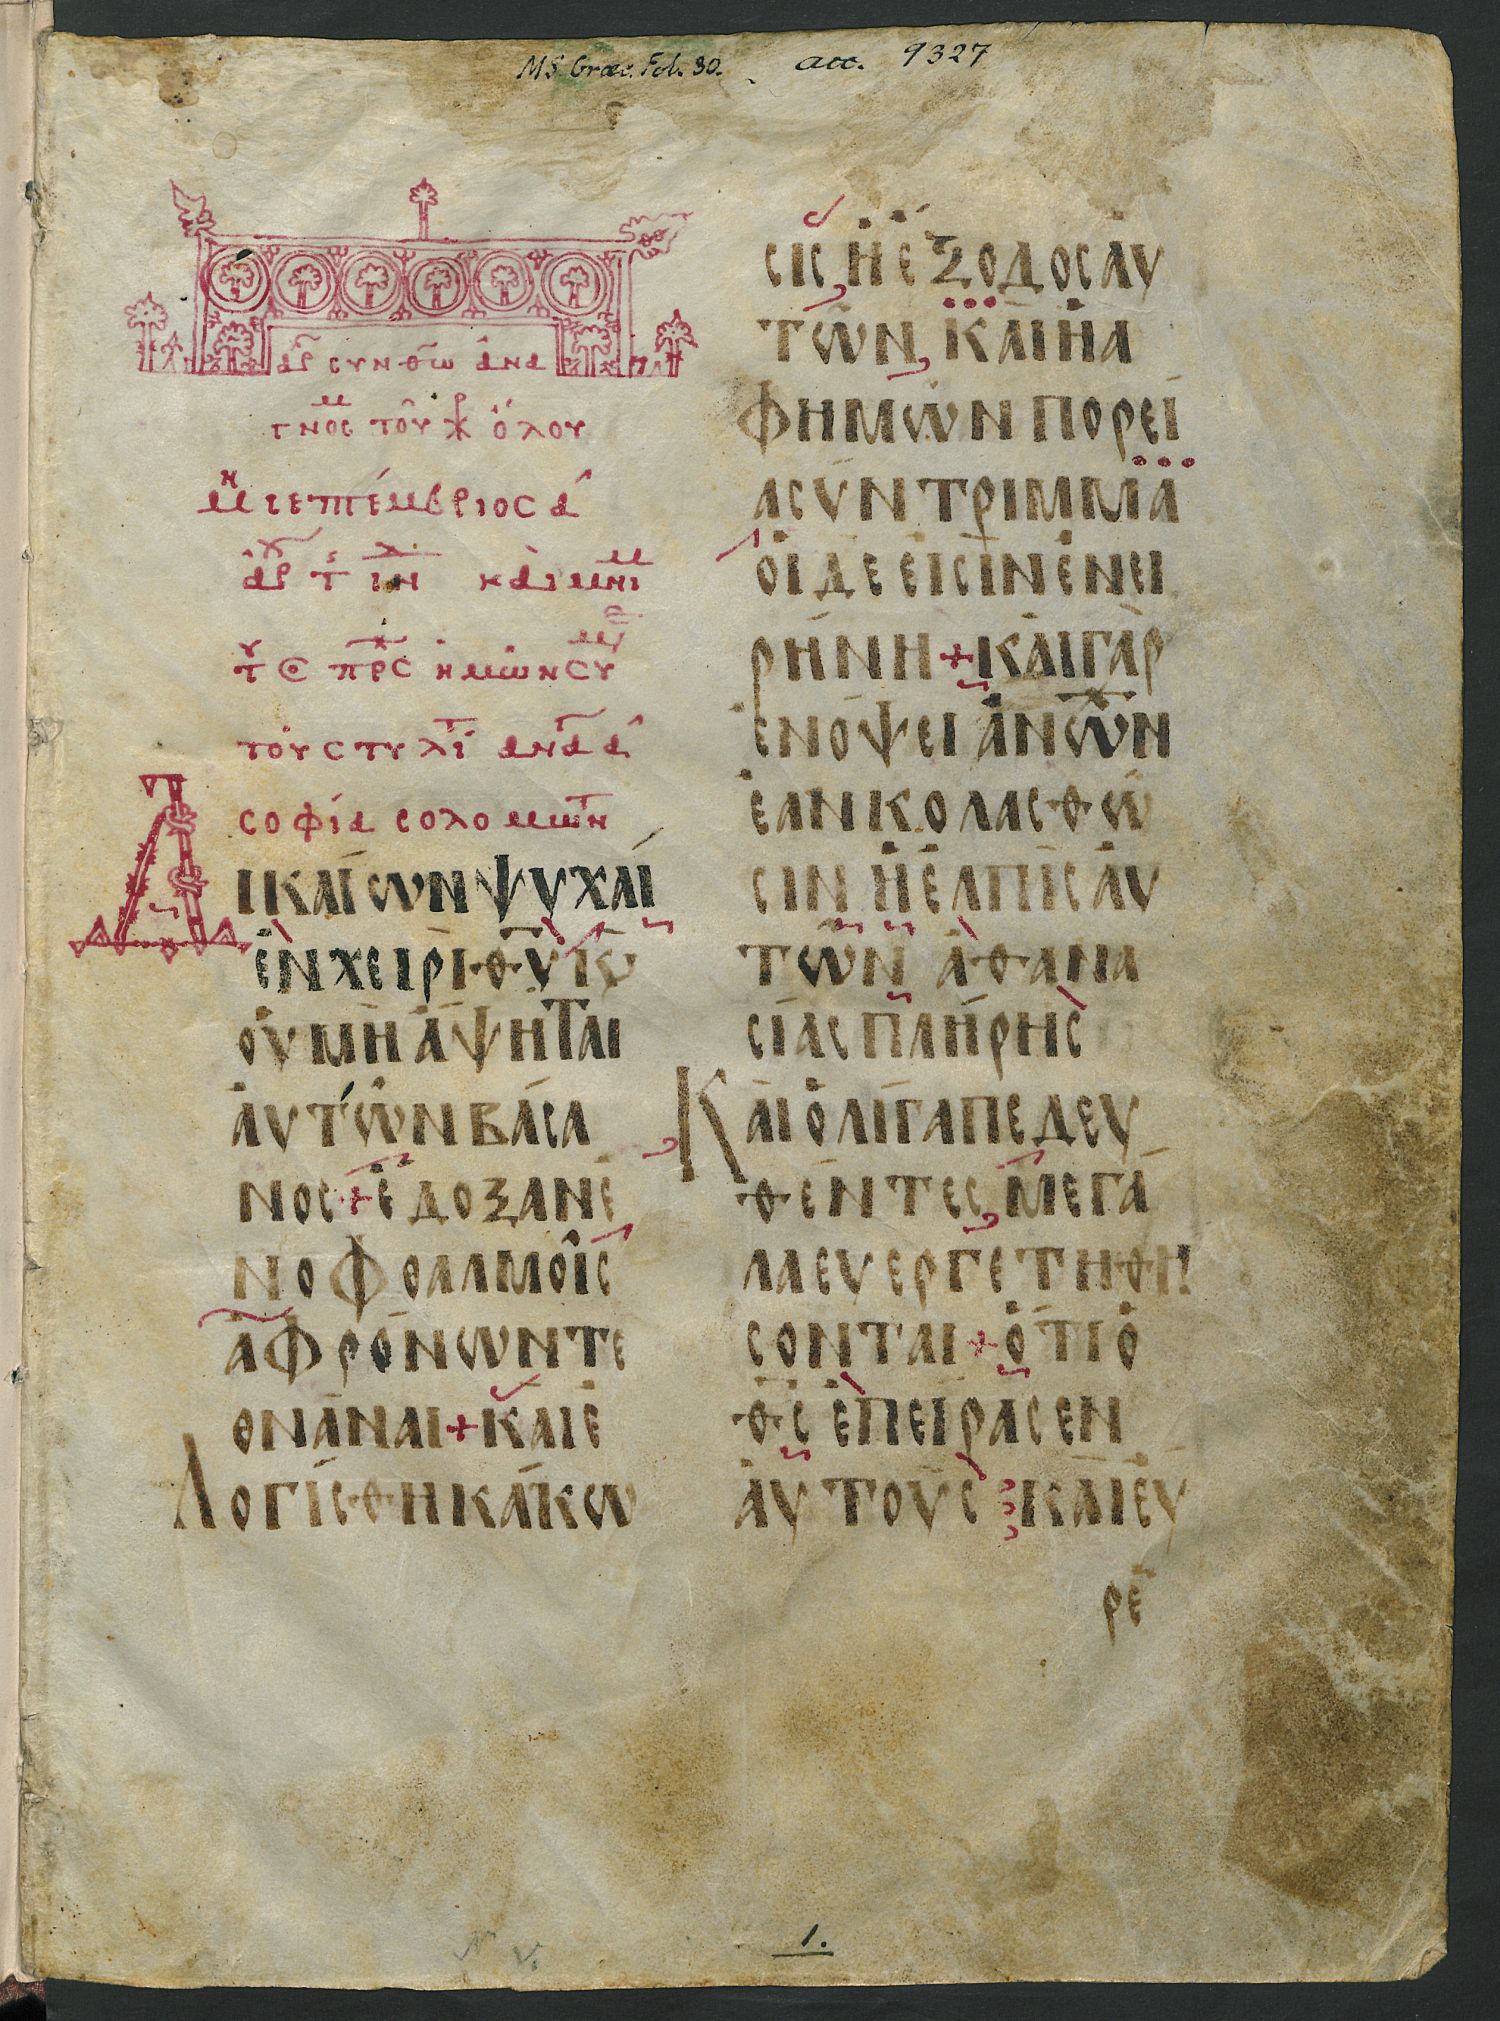 MS. Graec. Fol. 30. acc. 9327
ἀρ συν θω ἀνα
γνος τοῦ χρ ὅλου
μη σεπτέμβριος α
ἀρχ τ ιν καὶ μνι
τ πρς ἡμων συ
τοῦ στυλι ανα α
σοφία σολομων
Δ
ΙΚΑΙωΝ ΨΥΧΑΙ
ἐΝ ΧΕΙΡὶ ΘΥ Κ
ΟΥ ΜΗ ἅΨΗΤΑΙ
ἀΥΤῶΝ ΒΑϹΑ
ΝΟϹ + ἔΔΟΞΑΝ Ἐ
Ν ΟΦΘΑΛΜΟῖϹ
ἀΦΡΌΝωΝ ΤΕ
ΘΝΆΝΑΙ + ΚΑΙ Ἐ
ΛΟΓΊϹΘΗ ΚΆΚω
ϹΙϹ Ἡ ἜΞΟΔΟϹ ΑΥ
ΤῶΝ ΚΑῚ Ἡ Α
Φ ΗΜῶΝ ΠΟΡΕΊ
Α ϹΎΝΤΡΙΜΜΑ
ΟΙ ΔΕ ΕΙϹῚΝ ἘΝ ΕΙ
ΡΉΝΗ + ΚΑῚ ΓᾺΡ
ἘΝ ΌΨΕΙ ἈΝωΝ
ἘΑΝ ΚΟΛΑϹΘῶ
ϹΙΝ Ἡ ἘΛΠῚϹ ΑΥ
ΤῶΝ ἈΘΑΝΑ
ϹΊΑϹ ΠΛΉΡΗϹ
ΚΑΙ ὈΛΊΓΑ ΠΕΔΕΥ
ΘΈΝΤΕϹ ΜΕΓΆ
ΛΑ ΕΥΕΡΓΕΤΗΘΗ
ϹΟΝΤΑΙ + ὍΤΙ Ὁ
ΘϹ ἘΠΕΊΡΑϹΕΝ
ἈΥΤΟῪϹ ΚΑῚ ΕΥ
ΡΕ
1.